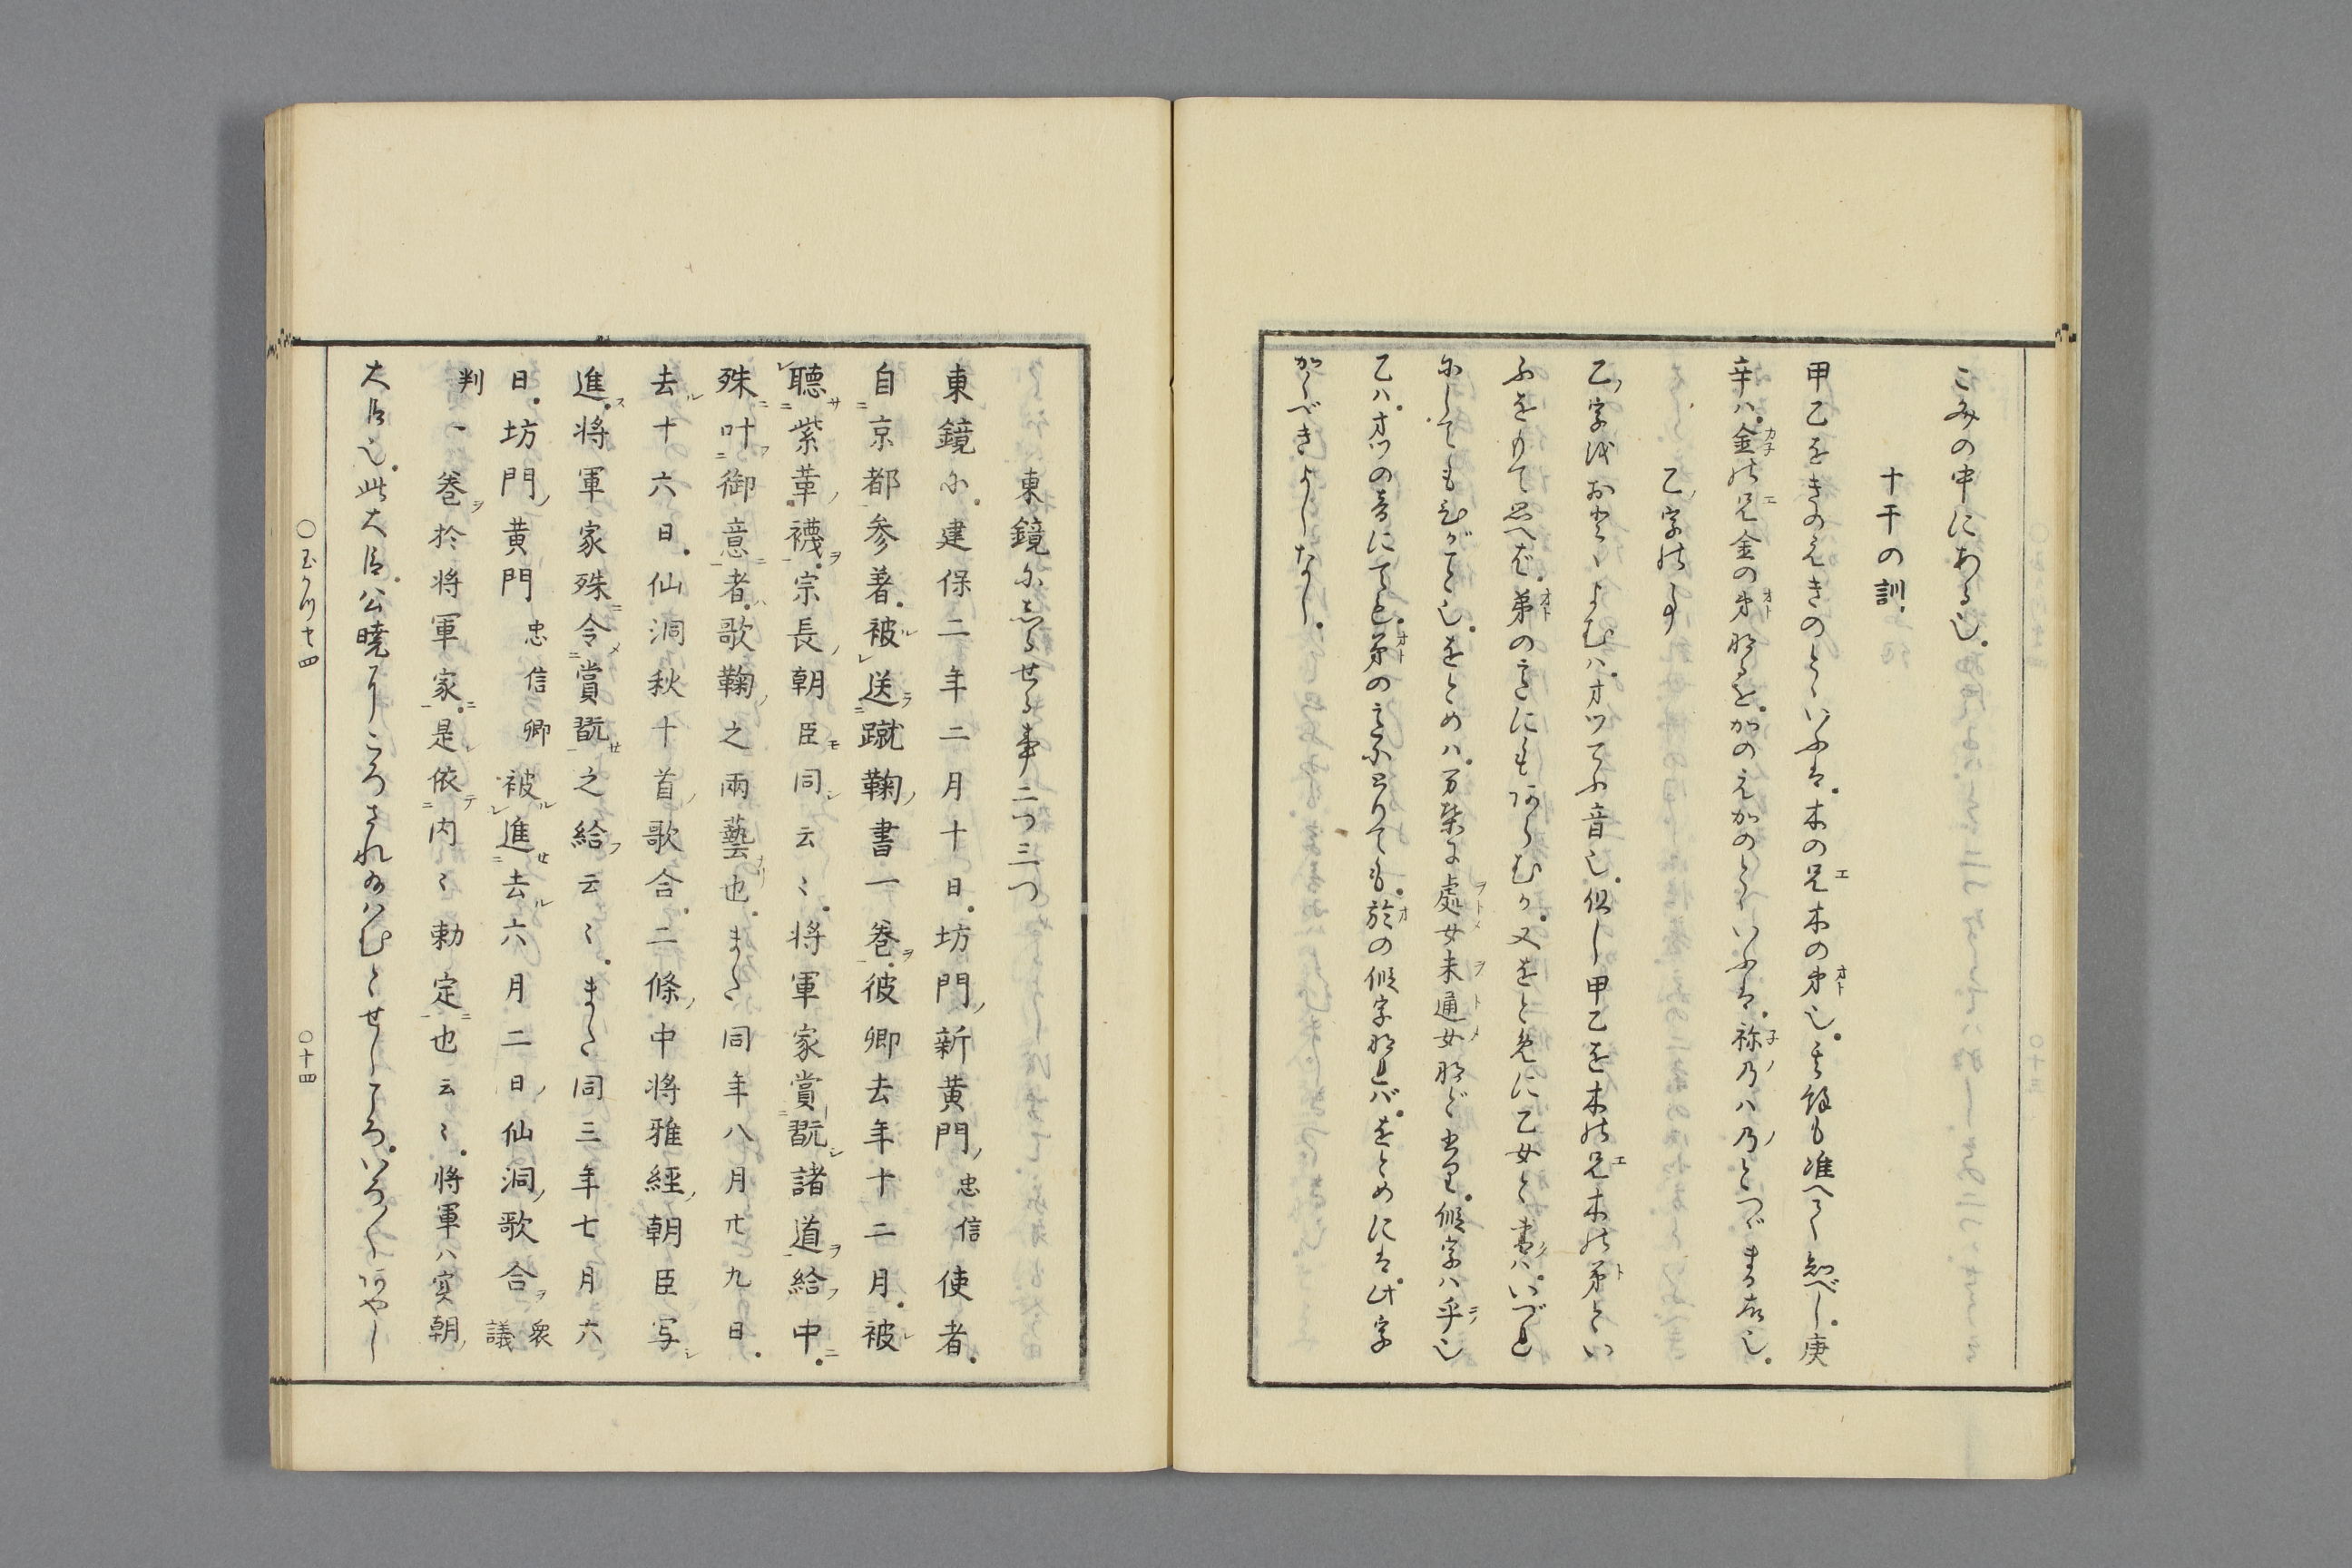 こみの中にある也。
十干の訓
甲乙をきのえきのとゝいふは。木の兄木の弟也。其餘も准へて知べし。庚
辛ハ。金の兄金の弟なるを。かのえかのとゝいふは。祢乃ハ乃とつゞまる故也。
乙ノ字の事
乙ノ字を おとゝよむハ。オツてふ音也。但し甲乙を木の兄木の弟とい
ふをもて思へば。弟の意にもあらむか。又をとめに乙女と書ハ。いづれ
にしてもひがこと也。をとめハ。万葉に處女未通女など書て。假字ハ乎也
乙ハ。オツの音にても。弟の意にとりても。於の假字なれバ。をとめには。此字
かくべきよしなし。
東鏡にしるせる事二つ三つ
東鏡に。建保二年二月十日。坊門ノ新黄門ノ忠信使者。
自京都参著。被送蹴鞠ノ書一巻。彼卿去年十二月。被
聴紫革ノ襪。宗長ノ朝臣同云〻。将軍家賞翫諸道給中。
殊叶御意者。歌鞠ノ之兩藝也。また同年八月廿九日。
去十六日。仙洞秋十首ノ歌合。二條ノ中将雅經ノ朝臣写
進。将軍家殊令賞翫之給云〻。また同三年七月六
日。坊門ノ黄門忠信卿被進去六月二日ノ仙洞ノ歌合衆議
判一巻於将軍家。是依内〻勅定也云〻。将軍ハ実朝ノ
大臣也。此大臣。公曉にころされ給ハむとせしころ。いろ〳〵あやし
〇玉かつま十四
〇十四